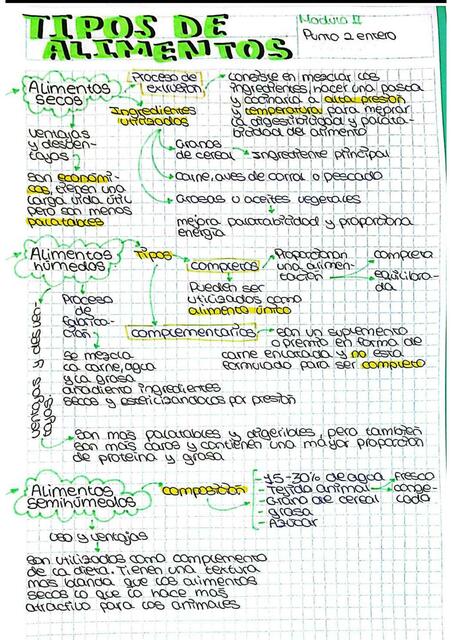 TIPOS DE
ALIMENTOS
Modulo II
Punto 2 entero
Alimentos
secos
Proceso de
extrusion
consiste en mezclar los
ingredientes, hacer una pasta
y cocinarla a alta presión
y temperatura para mejorar
la digestibilidad y palata-
bilidad del alimento
Ingredientes
utilizados
Granos
de cereal
Ingrediente principal
Carne, aves de corral o pescado
Grasas o aceites vegetales
mejora palatabilidad y proporciona
energía
ventajas
y desven-
tajas
son económi-
cos, tienen una
larga vida útil
pero son menos
palatables
Alimentos
húmedos
Tipos
completos
Proporcionan
una alimen-
tación
completa
equilibra-
da
Pueden ser
utilizados como
alimento único
complementarios
son un suplemento
o premio en forma de
carne enlatada y no está
formulado para ser completo
Proceso
de
fabrica-
ción
se mezcla
la carne, agua
y la grasa
añadiento ingredientes
secos y esterilizandolos por presión
ventajas y desven
tajas
son mas palatables y digeribles, pero también
son mas caros y contienen una mayor proporcion
de proteina y grasa
Alimentos
semihúmedos
composición
- 15-30% de agua
- Tejido animal
fresco
conge-
lado
- Grano de cereal
- grasa
- Azucar
uso y ventajas
son utilizados como complemento
de la dieta. Tienen una textura
mas blanda que los alimentos
secos lo que lo hace mas
atractivo para los animales